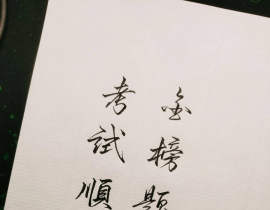 考試順
金榜題